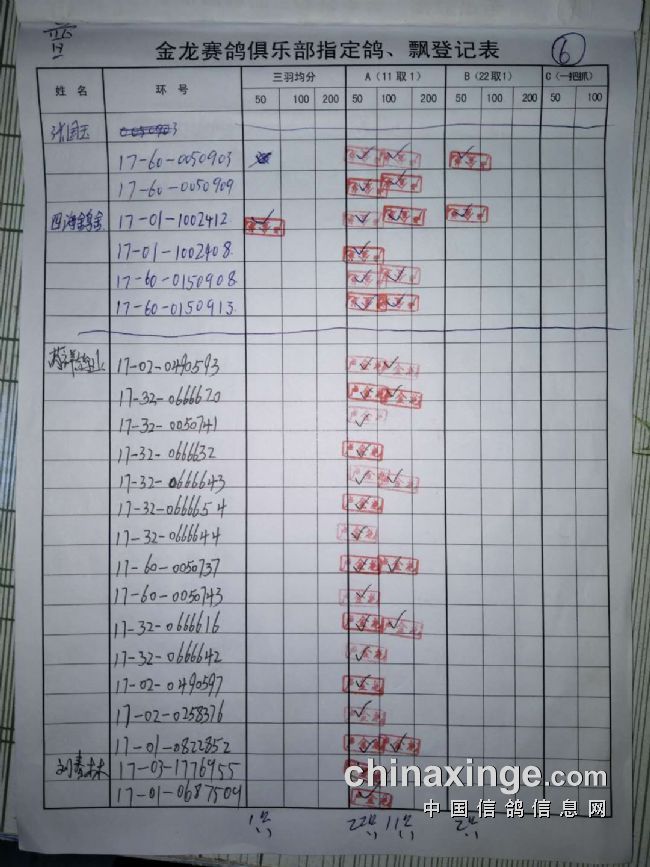 金龙赛鸽俱乐部指定鸽、飘登记表
⑥
姓名 环号 三羽均分 A（11取1） B（22取1） C（一把抓）
50 100 200 50 100 200 50 100 200 50 100
张国玉
17-60-0050903
17-60-0050909
四海 17-01-1002412
17-01-1002408
17-60-0150908
17-60-0150913
17-02-0490593
17-32-0666620
17-32-0050741
17-32-0666632
17-32-0666643
17-32-0666654
17-32-0666644
17-60-0050737
17-60-0050743
17-32-0666616
17-32-0666642
17-02-0490597
17-02-0258376
17-01-0822852
刘春林 17-03-1776955
17-01-0687509
chinaxinge.com
中国信鸽信息网